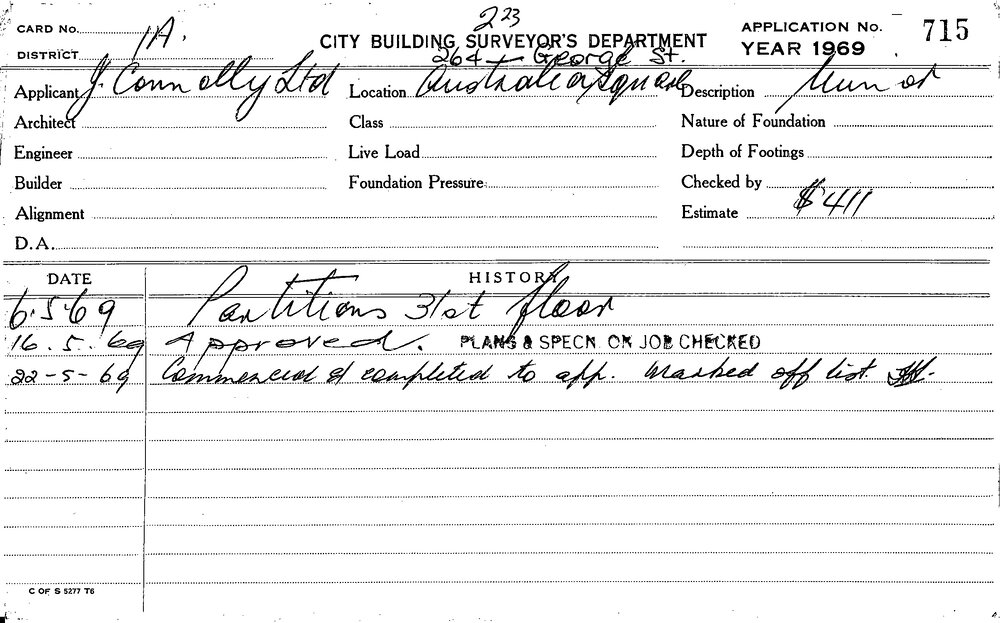 223
CARD No. APPLICATION No. 715
1A.
CITY BUILDING SURVEYOR'S DEPARTMENT YEAR 1969
DISTRICT 264 George St.
Applicant J. Connolly Ltd Location Australia Square Description
Architect Class Nature of Foundation
Engineer Live Load Depth of Footings
Builder Foundation Pressure Checked by
Alignment Estimate $411
D.A.
DATE HISTORY
6.5.69 Partitions 31st floor
16.5.69 Approved. PLANS & SPECN ON JOB CHECKED
22-5-69 Commenced & completed to app. Marked off list.
C OF S 5277 T6